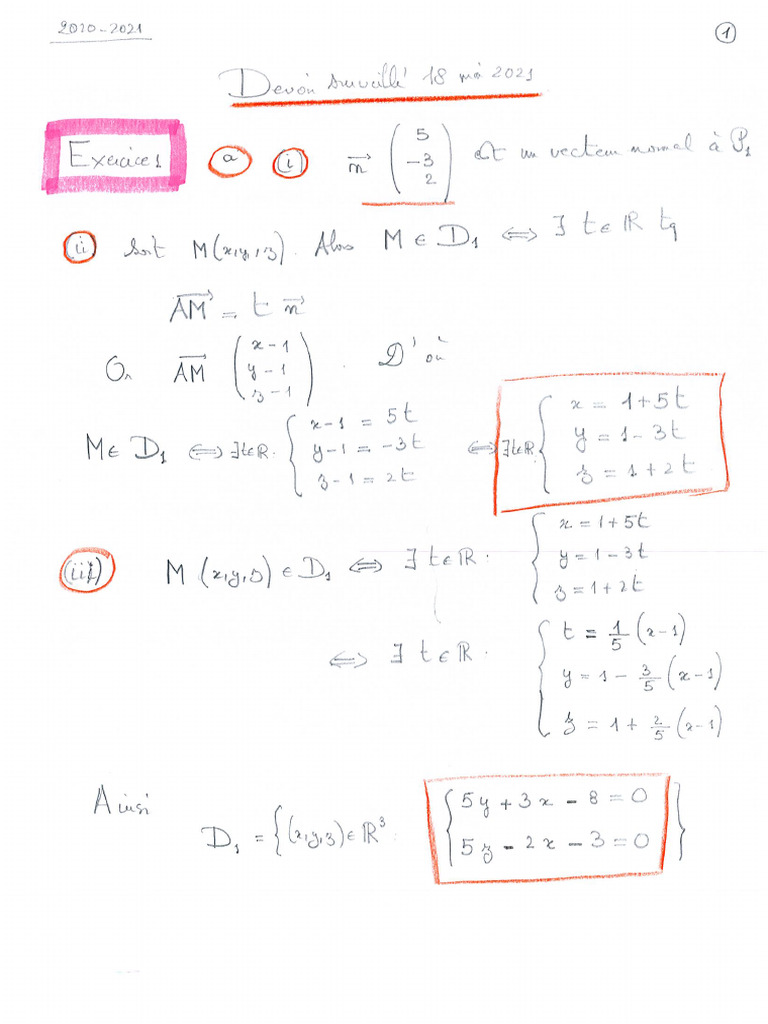 2020-2021
1
Devoir surveillé 18 mai 2021
Exercice 1 a i n⃗ (5 -3 2) est un vecteur normal à P₁
ii Soit M(x,y,z). Alors M ∈ D₁ ⟺ ∃ t ∈ ℝ tq
AM⃗ = t n⃗
On AM⃗ (x-1 y-1 z-1). D'où
M ∈ D₁ ⟺ ∃ t ∈ ℝ. { x-1 = 5t y-1 = -3t z-1 = 2t ⟺ ∃ t ∈ ℝ. { x = 1+5t y = 1-3t z = 1+2t
(iii) M (x,y,z) ∈ D₁ ⟺ ∃ t ∈ ℝ. { x = 1+5t y = 1-3t z = 1+2t
⟺ ∃ t ∈ ℝ. { t = 1/5 (x-1) y = 1 - 3/5 (x-1) z = 1 + 2/5 (x-1)
Ainsi
D₁ = { (x,y,z) ∈ ℝ³ : { 5y + 3x - 8 = 0 5z - 2x - 3 = 0 }